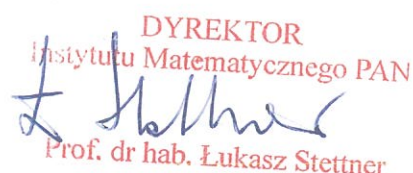 DYREKTOR
Instytutu Matematycznego PAN
Ł Stettner
Prof. dr hab. Łukasz Stettner